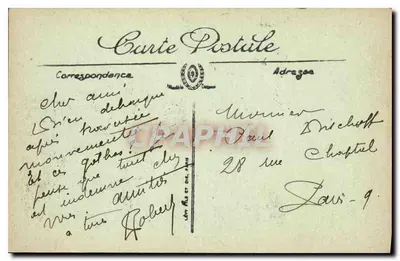 Carte Postale
Correspondance
Adresse
Cher ami
Bien débarqué
après traversée
mouvementée
Et ces gothas ?
pense que tout
est indemne chez
vous. amitiés
à tous
Robert
Monsieur
Paul Bischoff
28 rue Chaptal
Paris - 9